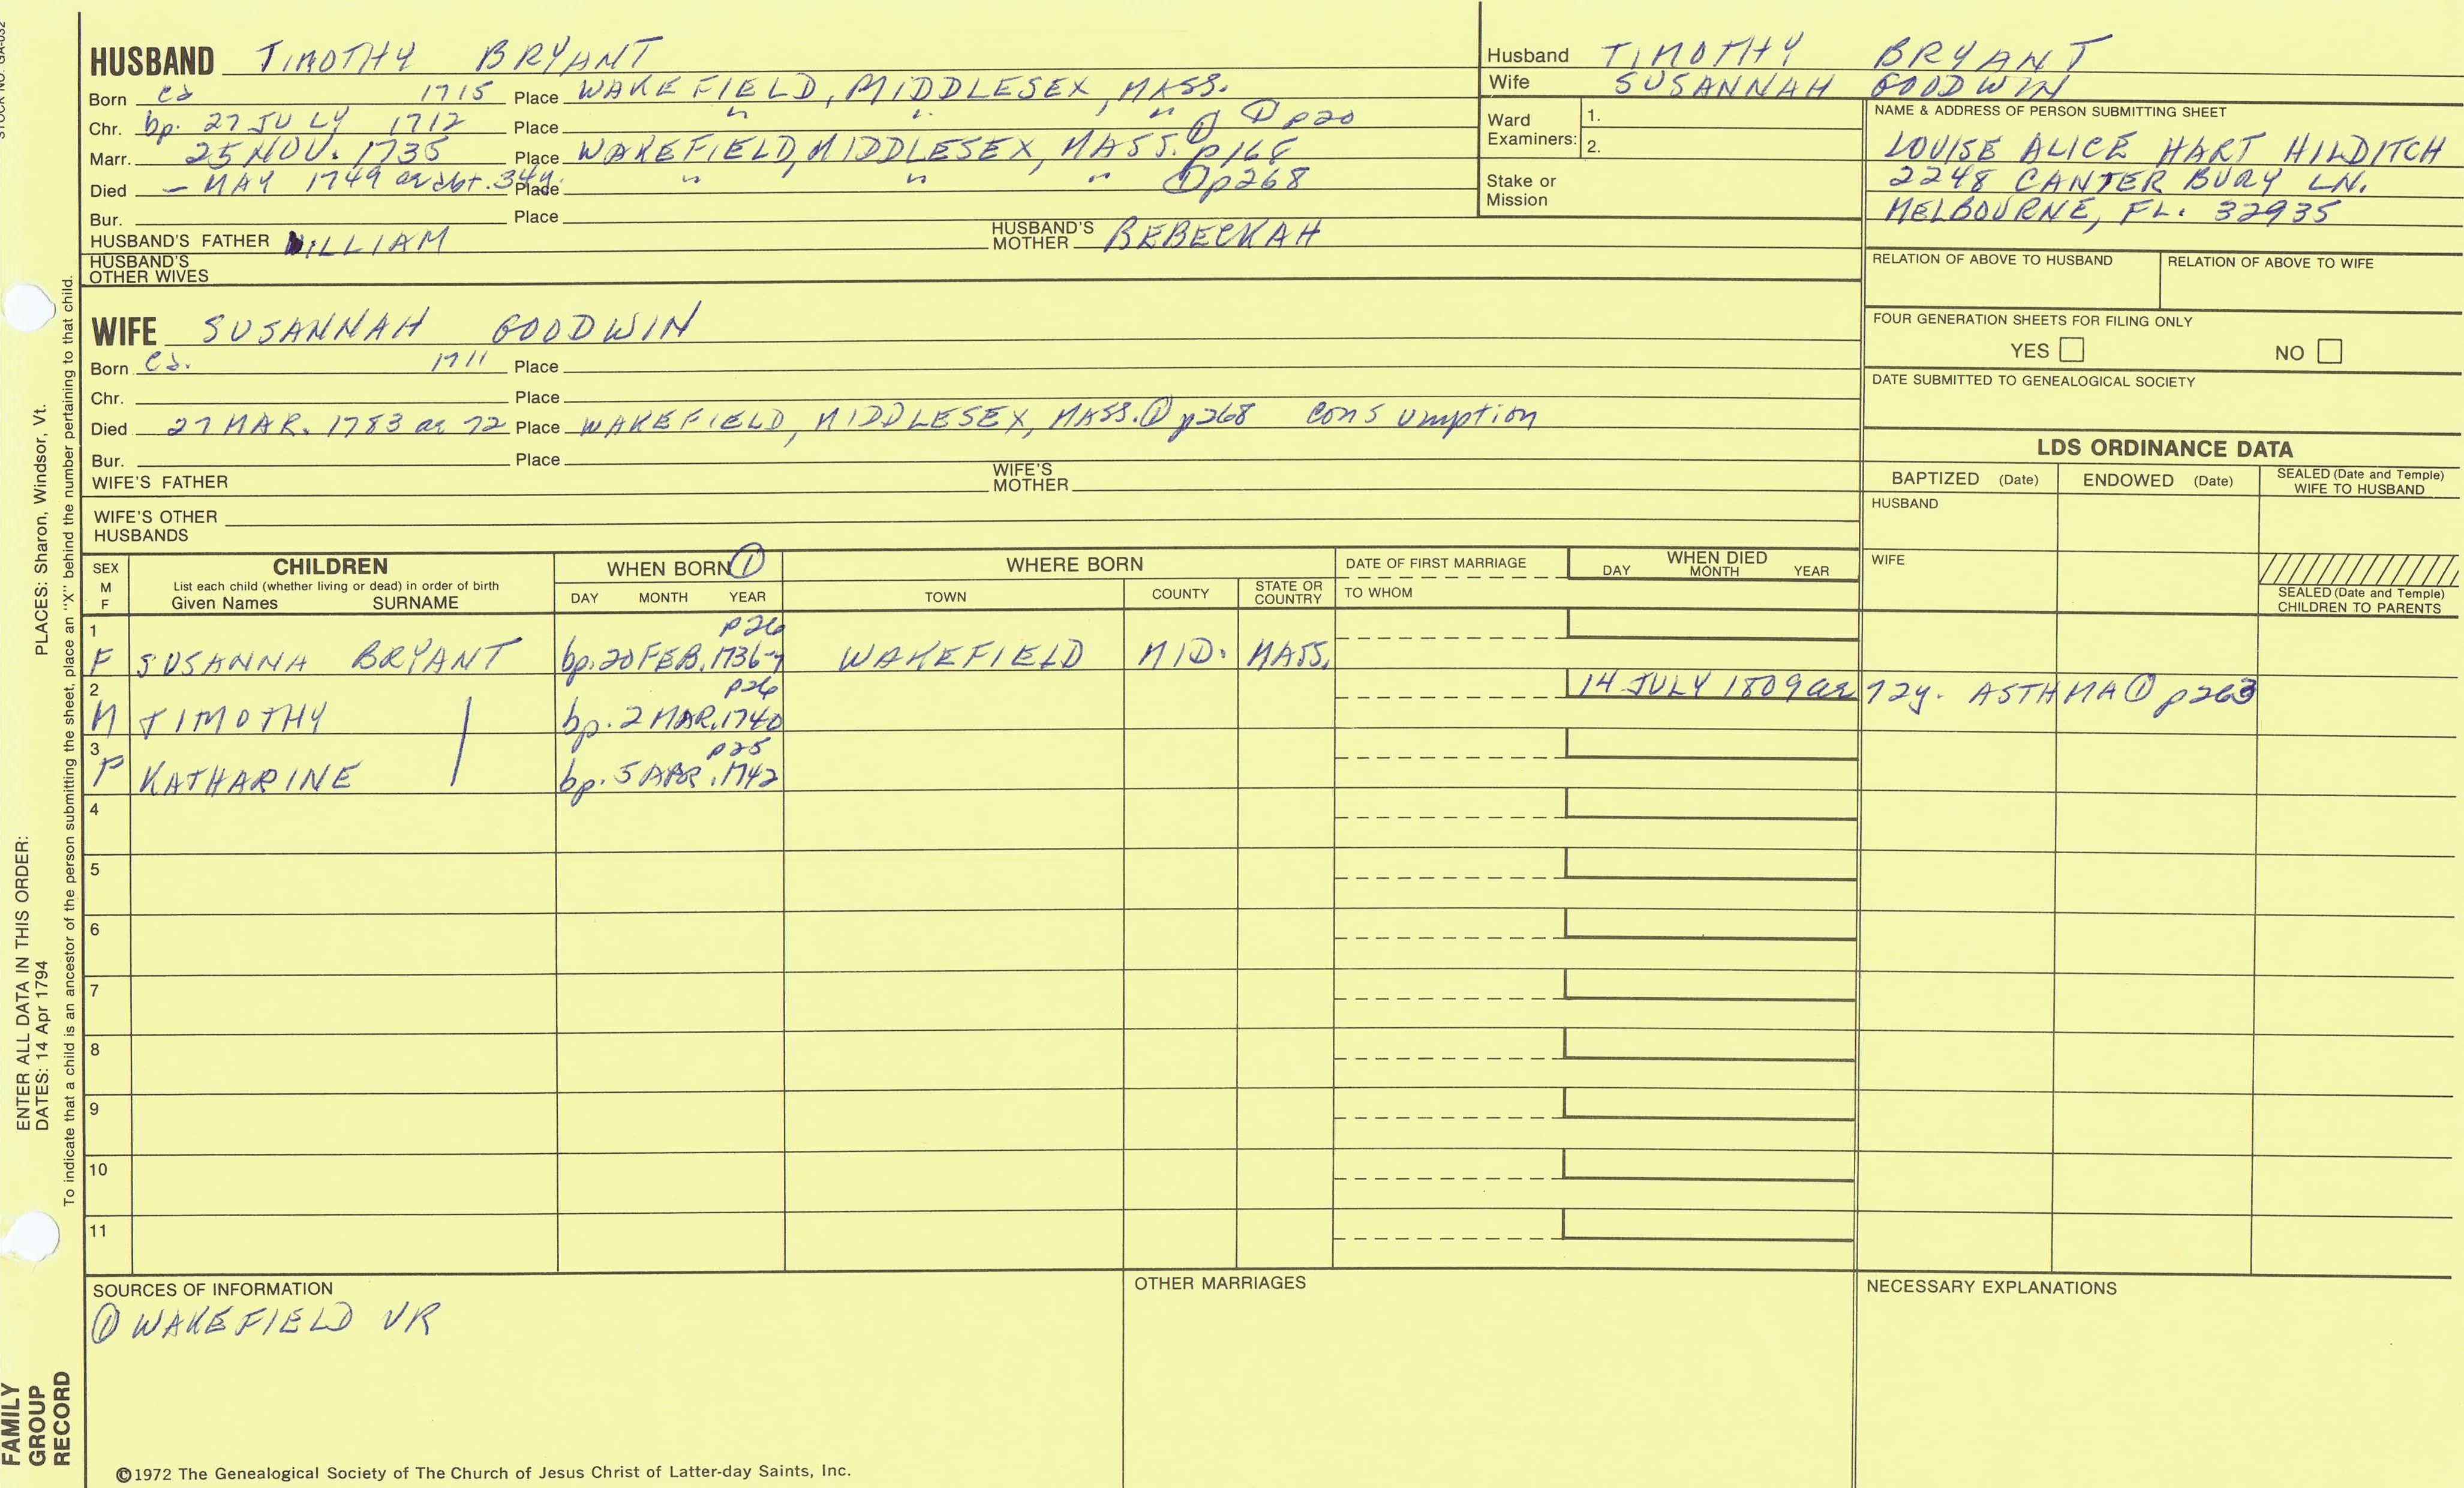 STOCK NO. GA-032
HUSBAND TIMOTHY BRYANT
Born ca 1715 Place WAKEFIELD, MIDDLESEX, MASS.
Chr. bp. 27 JULY 1712 Place " " " ① p20
Marr. 25 NOV. 1735 Place WAKEFIELD, MIDDLESEX, MASS. ① p168
Died – MAY 1749 ae abt. 34y. Place " " " ① p268
Bur. Place
HUSBAND'S FATHER WILLIAM HUSBAND'S MOTHER BEBECKAH
HUSBAND'S OTHER WIVES
Husband TIMOTHY BRYANT
Wife SUSANNAH GOODWIN
Ward Examiners: 1.
2.
Stake or Mission
NAME & ADDRESS OF PERSON SUBMITTING SHEET
LOUISE ALICE HART HILDITCH
2248 CANTERBURY LN.
MELBOURNE, FL. 32935
RELATION OF ABOVE TO HUSBAND RELATION OF ABOVE TO WIFE
FOUR GENERATION SHEETS FOR FILING ONLY
YES NO
DATE SUBMITTED TO GENEALOGICAL SOCIETY
WIFE SUSANNAH GOODWIN
Born ca. 1711 Place
Chr. Place
Died 27 MAR. 1783 ae 72 Place WAKEFIELD, MIDDLESEX, MASS. ① p268 consumption
Bur. Place
WIFE'S FATHER WIFE'S MOTHER
WIFE'S OTHER HUSBANDS
LDS ORDINANCE DATA
BAPTIZED (Date) ENDOWED (Date) SEALED (Date and Temple) WIFE TO HUSBAND
HUSBAND
WIFE
SEALED (Date and Temple) CHILDREN TO PARENTS
SEX M F
CHILDREN
List each child (whether living or dead) in order of birth
Given Names SURNAME
WHEN BORN ①
DAY MONTH YEAR
WHERE BORN
TOWN COUNTY STATE OR COUNTRY
DATE OF FIRST MARRIAGE
TO WHOM
WHEN DIED
DAY MONTH YEAR
1 p26
F SUSANNA BRYANT bp. 20 FEB. 1736-7 WAKEFIELD MID. MASS.
2 p26 14 JULY 1809 ae 72y. ASTHMA ① p263
M TIMOTHY bp. 2 MAR. 1740
3 p25
F KATHARINE bp. 5 APR. 1742
4
5
6
7
8
9
10
11
SOURCES OF INFORMATION
① WAKEFIELD VR
OTHER MARRIAGES
NECESSARY EXPLANATIONS
©1972 The Genealogical Society of The Church of Jesus Christ of Latter-day Saints, Inc.
ENTER ALL DATA IN THIS ORDER:
DATES: 14 Apr 1794
PLACES: Sharon, Windsor, Vt.
To indicate that a child is an ancestor of the person submitting the sheet, place an "X" behind the number pertaining to that child.
FAMILY
GROUP
RECORD